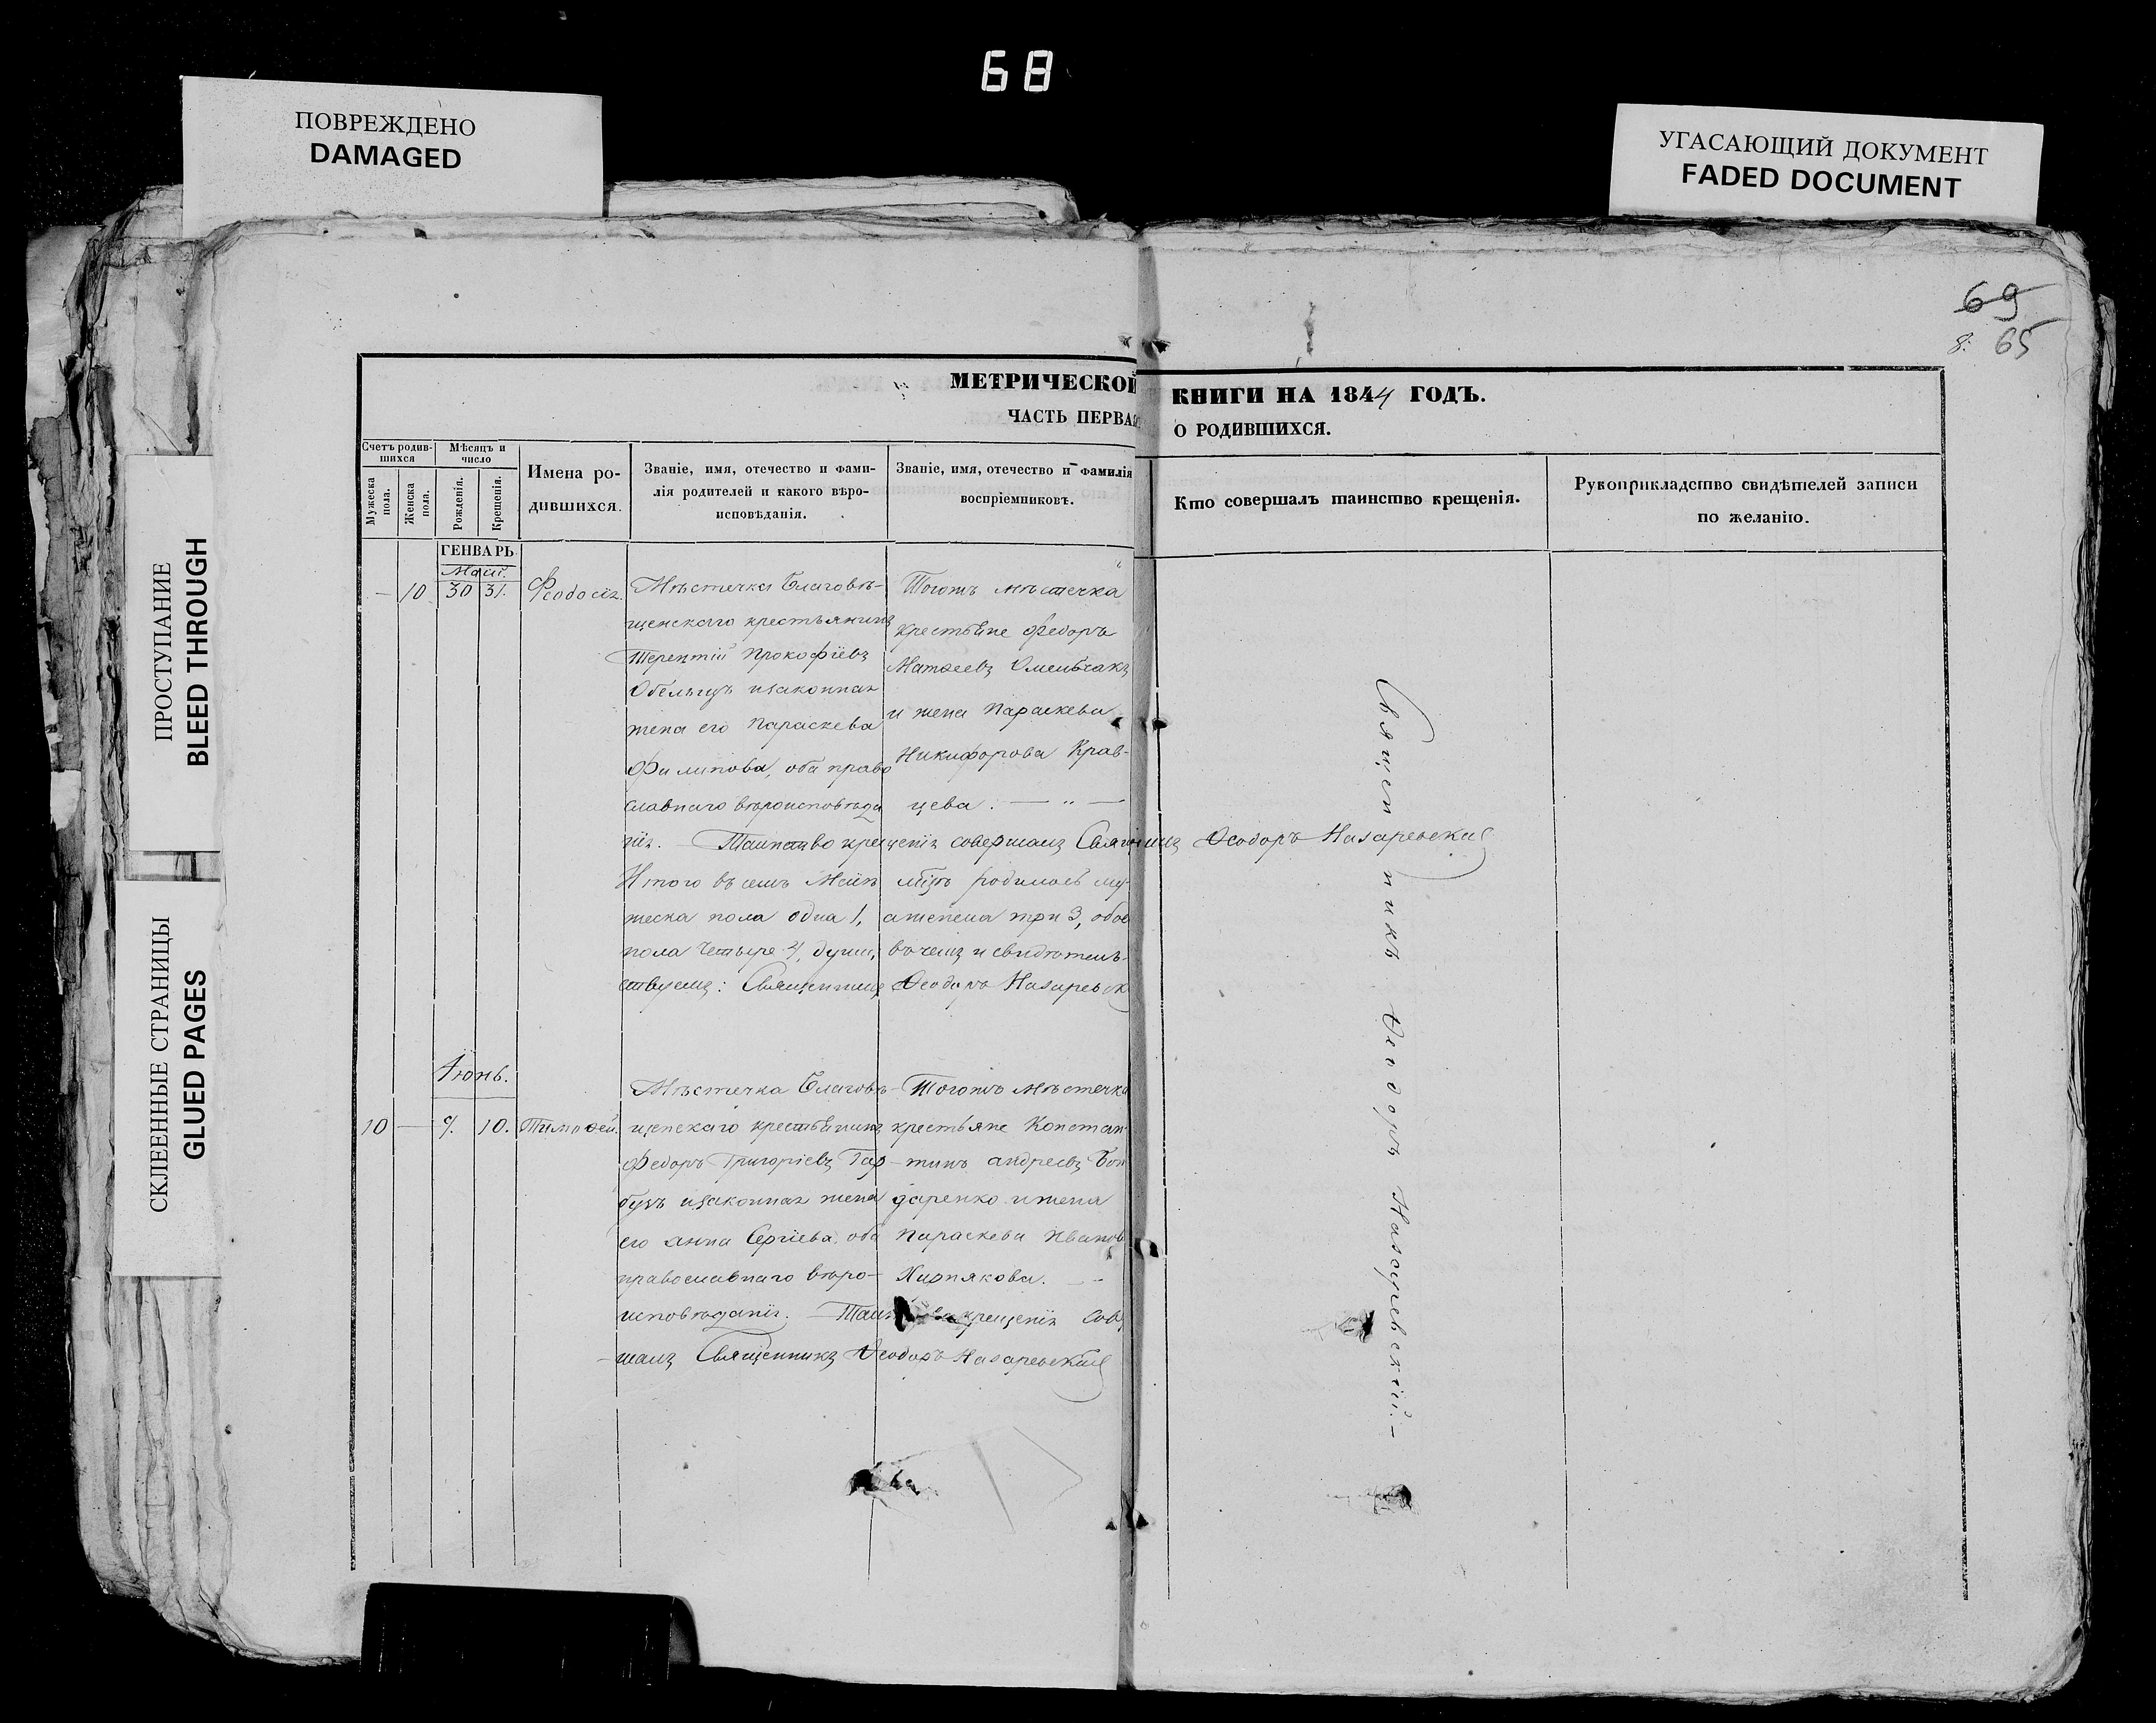 68
ПОВРЕЖДЕНО
DAMAGED
УГАСАЮЩИЙ ДОКУМЕНТ
FADED DOCUMENT
ПРОСТУПАНИЕ
BLEED THROUGH
СКЛЕЕННЫЕ СТРАНИЦЫ
GLUED PAGES
69
8: 65
МЕТРИЧЕСКОЙ КНИГИ НА 1844 ГОДЪ.
ЧАСТЬ ПЕРВАЯ О РОДИВШИХСЯ.
Счетъ родив-
шихся
Мужеска
пола.
Женска
пола.
Мѣсяцъ и
число
Рожденія.
Крещенія.
Имена ро-
дившихся.
Званіе, имя, отечество и фами-
лія родителей и какого вѣро-
исповѣданія.
Званіе, имя, отечество и фамилія
воспріемниковъ.
Кто совершалъ таинство крещенія.
Рукоприкладство свидѣтелей записи
по желанію.
ГЕНВАРЬ
Маій.
— 10 30 31. Феодосія.
Мѣстечка Благовѣ-
щенскаго крестьянинъ
Терентій Прокофіевъ
изаконная
жена его Параскева
Филипова, оба право
славнаго вѣроисповѣда
нія. — Таинство крещенія совершалъ Священникъ Ѳеодоръ Назаревскій
Тогожъ мѣстечка
крестьяне Федоръ
Матѳеевъ Омельчакъ
и жена Параскева
Никифорова Крав-
цева. — „ —
Итого въ семъ Маіи мцѣ родилось му-
жеска пола одна 1, а женска три 3, обое
пола четыре 4, души, въ чемъ и свидѣтель-
ствуемъ: Священникъ Ѳеодоръ Назаревск
Іюнь.
10 — 9. 10. Тимоѳей.
Мѣстечка Благовѣ-
щенскаго крестьянинъ
Федоръ Григоріевъ Гар-
бузъ изаконная жена
его Анна Сергіева, оба
православнаго вѣро-
исповѣданія. — Таин крещенія Сов
шалъ Священникъ Ѳеодоръ Назаревскій
Тогожъ мѣстечка
крестьяне Констан-
тинъ Андреевъ Бон
даренко и жена
Параскева Иванов
Хижнякова. — -
Священникъ Ѳеодоръ Назаревскій. —